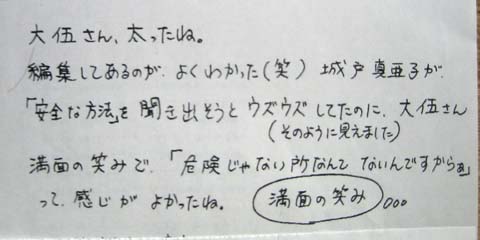 大伍さん、太ったね。
編集してあるのが、よくわかった(笑) 城戸真亜子が、
「安全な方法」を聞き出そうとウズウズしてたのに、大伍さん
(そのように見えました)
満面の笑みで、「危険じゃない所なんてないんですからぁ」
って、感じがよかったね。 満面の笑み 。。。